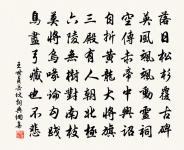 落日松杉覆古碑
英風颯颯動靈祠
空傳赤帝中興詔
自折黃龍大將旗
三殿有人朝北極
六陵無樹對南枝
莫將烏喙論勾踐
鳥盡弓藏也不悲
王世貞岳坟詞典網書